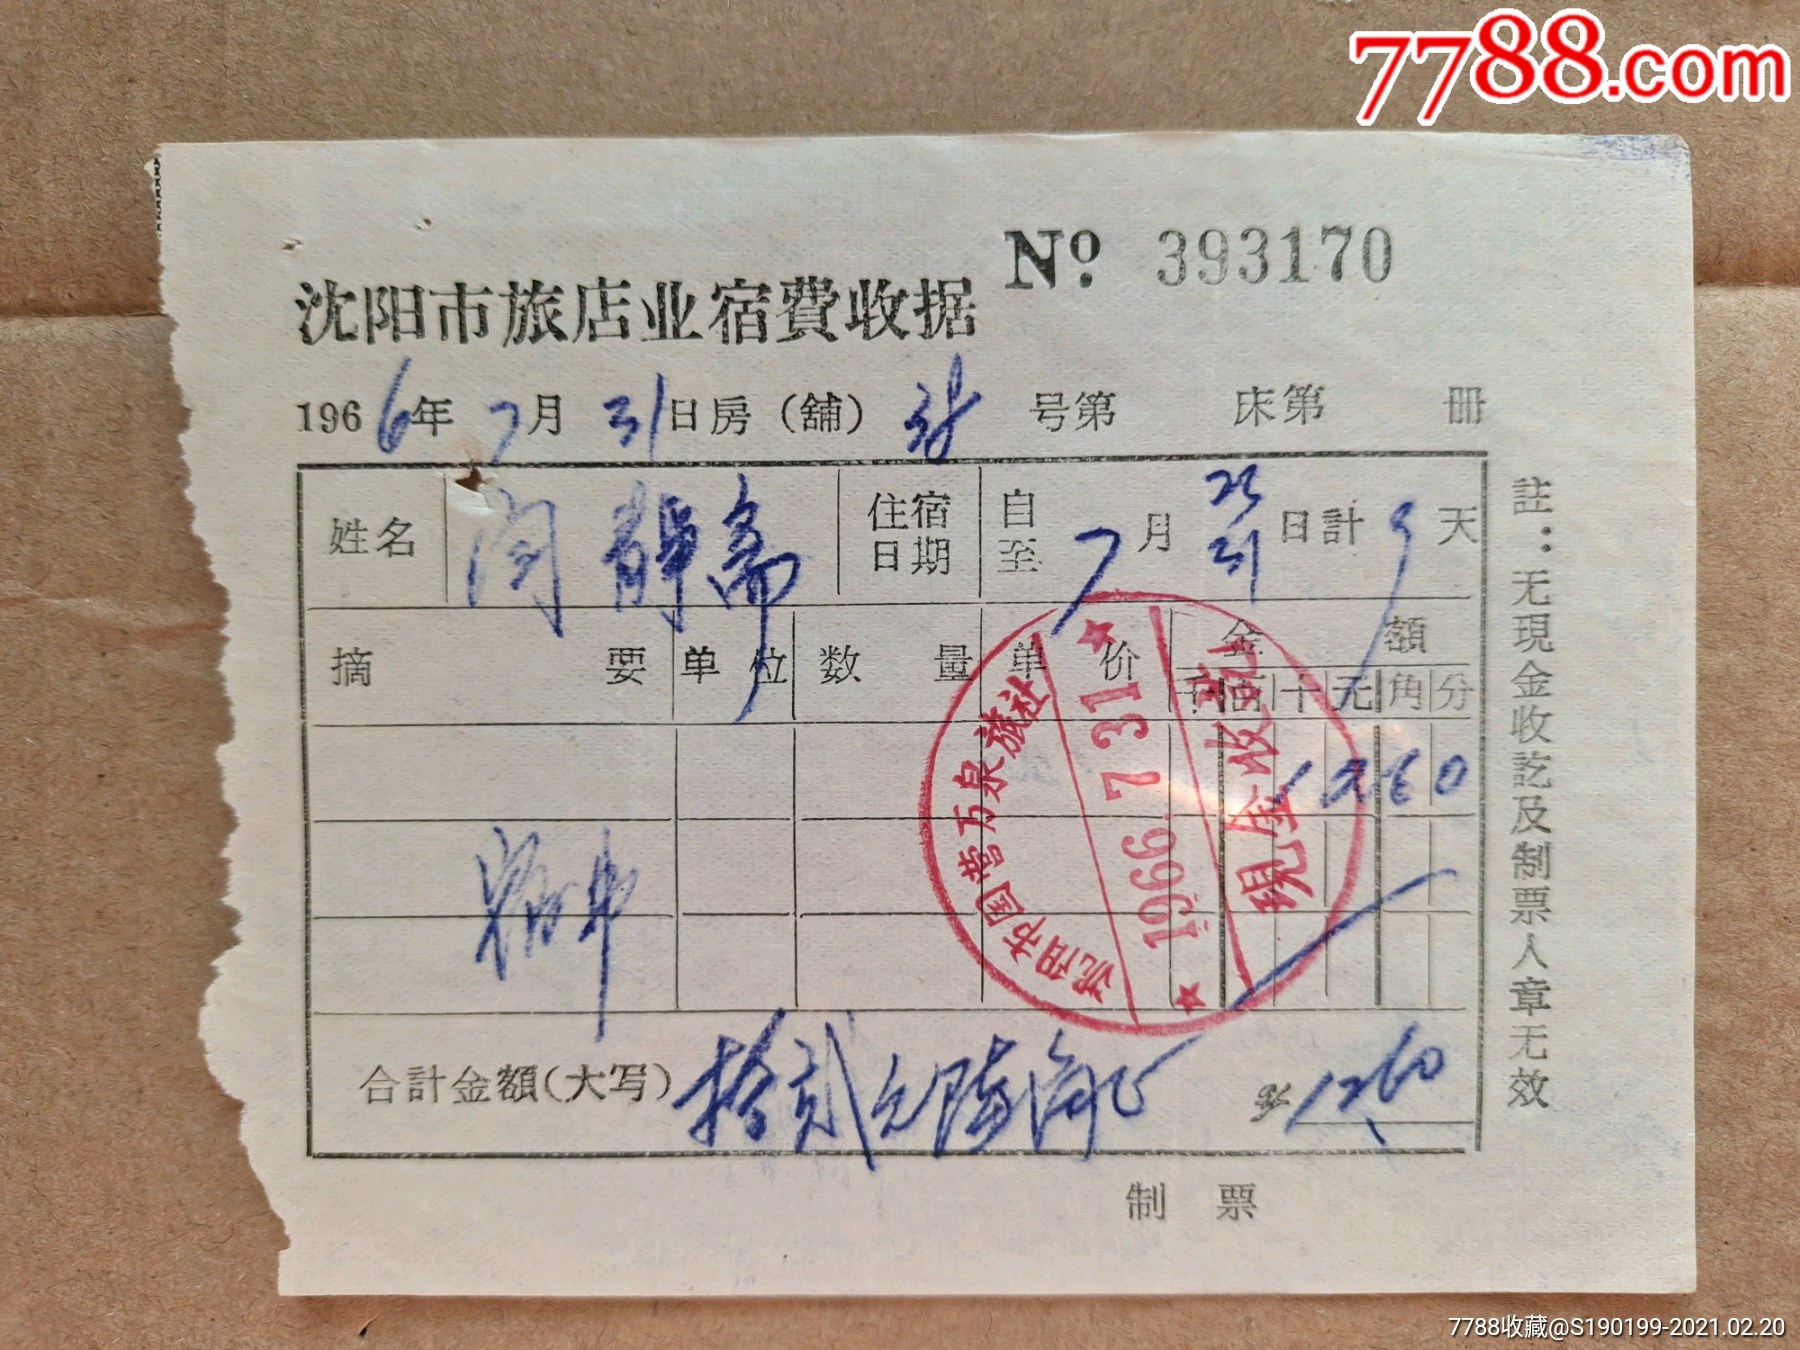 7788.com
№ 393170
沈阳市旅店业宿費收据
1966年 7月 31日房（舖） 号第 床第 册
姓名 閆静斋 住宿日期 自至 7月 23 31 日計 9 天
摘要 单位 数量 单价 金額
千 百 十 元 角 分
1 2 6 0
合計金額(大写) 拾贰元陆角正 ¥12.60
制票
註：无現金收訖及制票人章无效
沈阳市国营万泉旅社
1966.7 31
現金收訖
7788收藏@S190199-2021.02.20